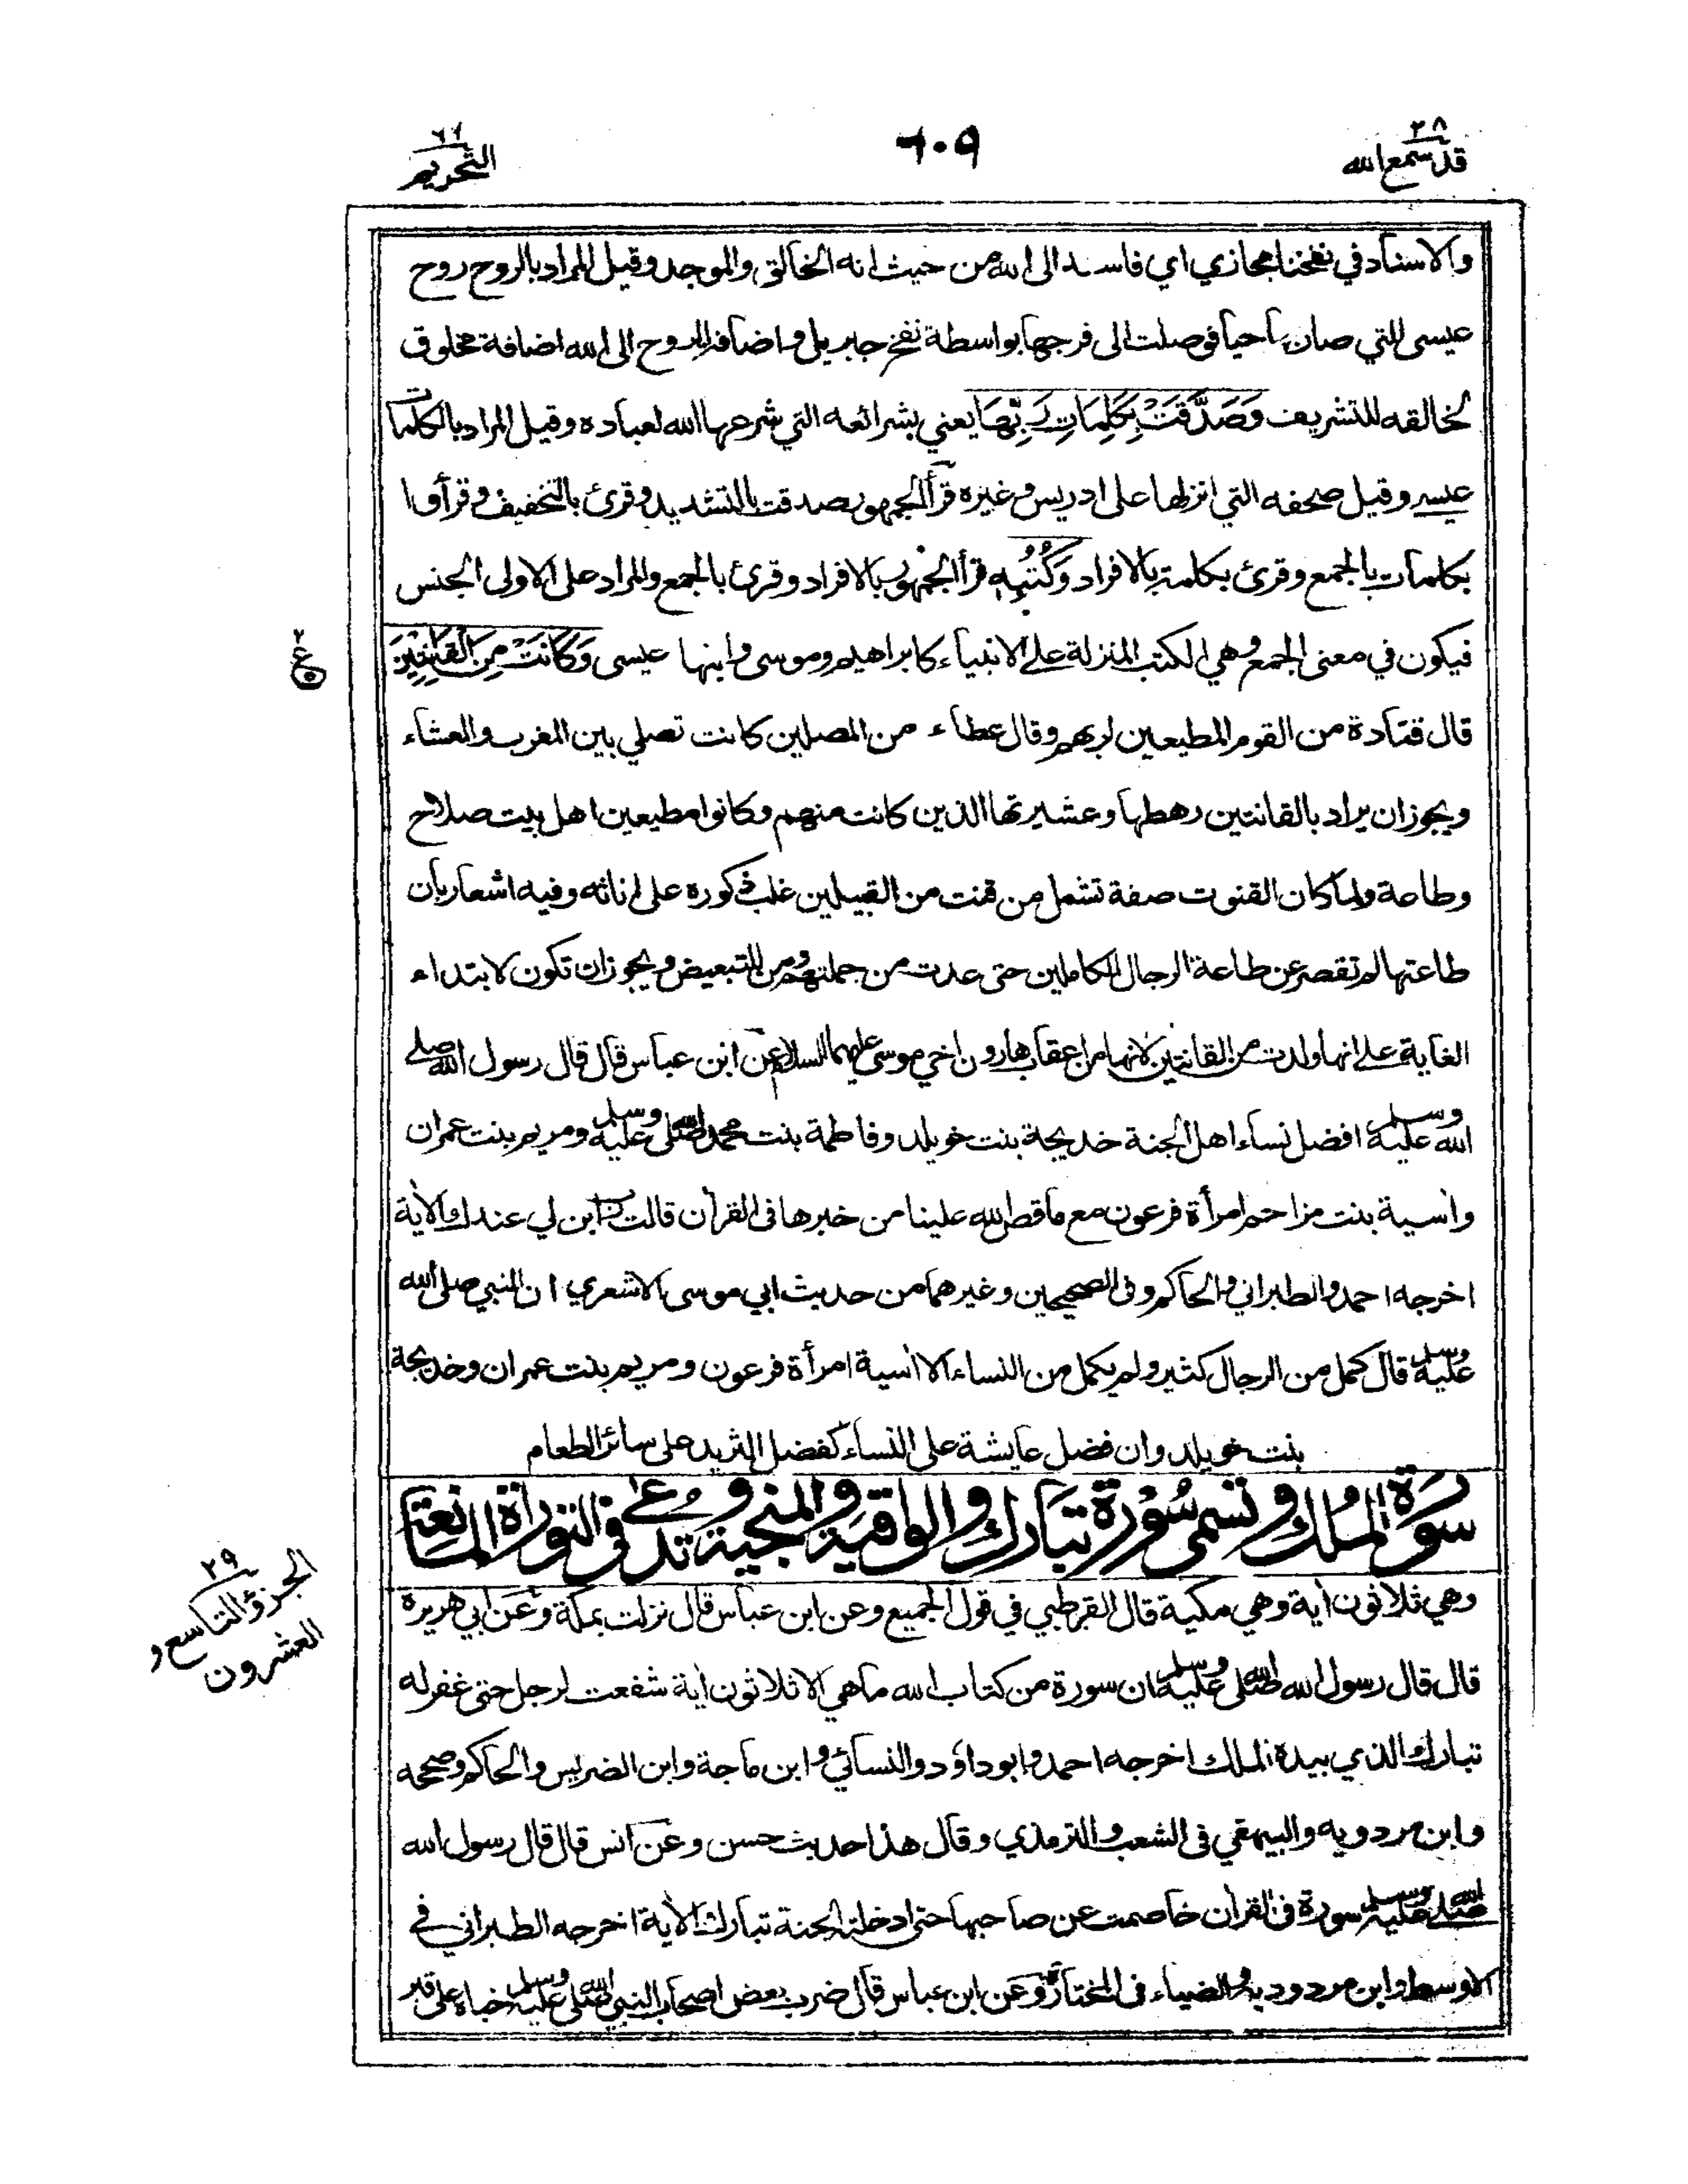 ٢٨
قد سمع الله
٦٠٩
٦٦
التحريم
والاسناد في نفخنا مجازي اي فاسند الى الله من حيث انه الخالق والموجد وقيل المراد بالروح روح
عيسى التي صار بها حيا فوصلت الى فرجها بواسطة نفخ جبريل واضافة الروح الى الله اضافة مخلوق
لخالقه للتشريف وَصَدَّقَتْ بِكَلِمَاتِ رَبِّهَا يعني بشرائعه التي شرعها الله لعباده وقيل المراد بالكلمات
عيسى وقيل صحفه التي انزلها على ادريس وغيره قرأ الجمهور صدقت بالتشديد وقرئ بالتخفيف وقرأوا
بكلمات بالجمع وقرئ بكلمة بالافراد وَكُتُبِهِ قرأ الجمهور بالافراد وقرئ بالجمع والمراد على الاولى الجنس
فيكون في معنى الجمع وهي الكتب المنزلة على الانبياء كابراهيم وموسى وابنها عيسى وَكَانَتْ مِنَ الْقَانِتِينَ
قال قتادة من القوم المطيعين لربهم وقال عطاء من المصلين كانت تصلي بين المغرب والعشاء
ويجوز ان يراد بالقانتين رهطها وعشيرتها الذين كانت منهم وكانوا مطيعين اهل بيت صلاح
وطاعة ولما كان القنوت صفة تشمل من قنت من القبيلين غلب ذكوره على اناثه وفيه اشعار بان
طاعتها لم تقصر عن طاعة الرجال الكاملين حتى عدت من جملتهم ومن للتبعيض ويجوز ان تكون لابتداء
الغاية على انها ولدت من القانتين لانها من اعقاب هارون اخي موسى عليهما السلام عن ابن عباس قال قال رسول الله صلى
الله عليه وسلم افضل نساء اهل الجنة خديجة بنت خويلد وفاطمة بنت محمد صلى الله عليه وسلم ومريم بنت عمران
واٰسية بنت مزاحم امرأة فرعون مع ما قص الله علينا من خبرها في القراٰن قالت رب ابن لي عندك الاٰية
اخرجه احمد والطبراني والحاكم وفي الصحيحين وغيرهما من حديث ابي موسى الاشعري ان النبي صلى الله
عليه وسلم قال كمل من الرجال كثير ولم يكمل من النساء الا اٰسية امرأة فرعون ومريم بنت عمران وخديجة
بنت خويلد وان فضل عايشة على النساء كفضل الثريد على سائر الطعام
سورة الملك وتسمى سورة تبارك والواقية والمنجية وتدعى في التوراة المانعة
وهي ثلاثون اٰية وهي مكية قال القرطبي في قول الجميع وعن ابن عباس قال نزلت بمكة وعن ابي هريرة
قال قال رسول الله صلى الله عليه وسلم ان سورة من كتاب الله ما هي الا ثلاثون اٰية شفعت لرجل حتى غفر له
تبارك الذي بيده الملك اخرجه احمد وابو داؤد والنسائي وابن ماجة وابن الضريس والحاكم وصححه
وابن مردويه والبيهقي في الشعب والترمذي وقال هذا حديث حسن وعن انس قال قال رسول الله
صلى الله عليه وسلم سورة في القراٰن خاصمت عن صاحبها حتى ادخلته الجنة تبارك الاٰية اخرجه الطبراني في
الاوسط وابن مردويه والضياء في المختارة وعن ابن عباس قال ضرب بعض اصحاب النبي صلى الله عليه وسلم خباه على قبر
٢
ع
٢٩
الجزؤ التاسع و
العشرون